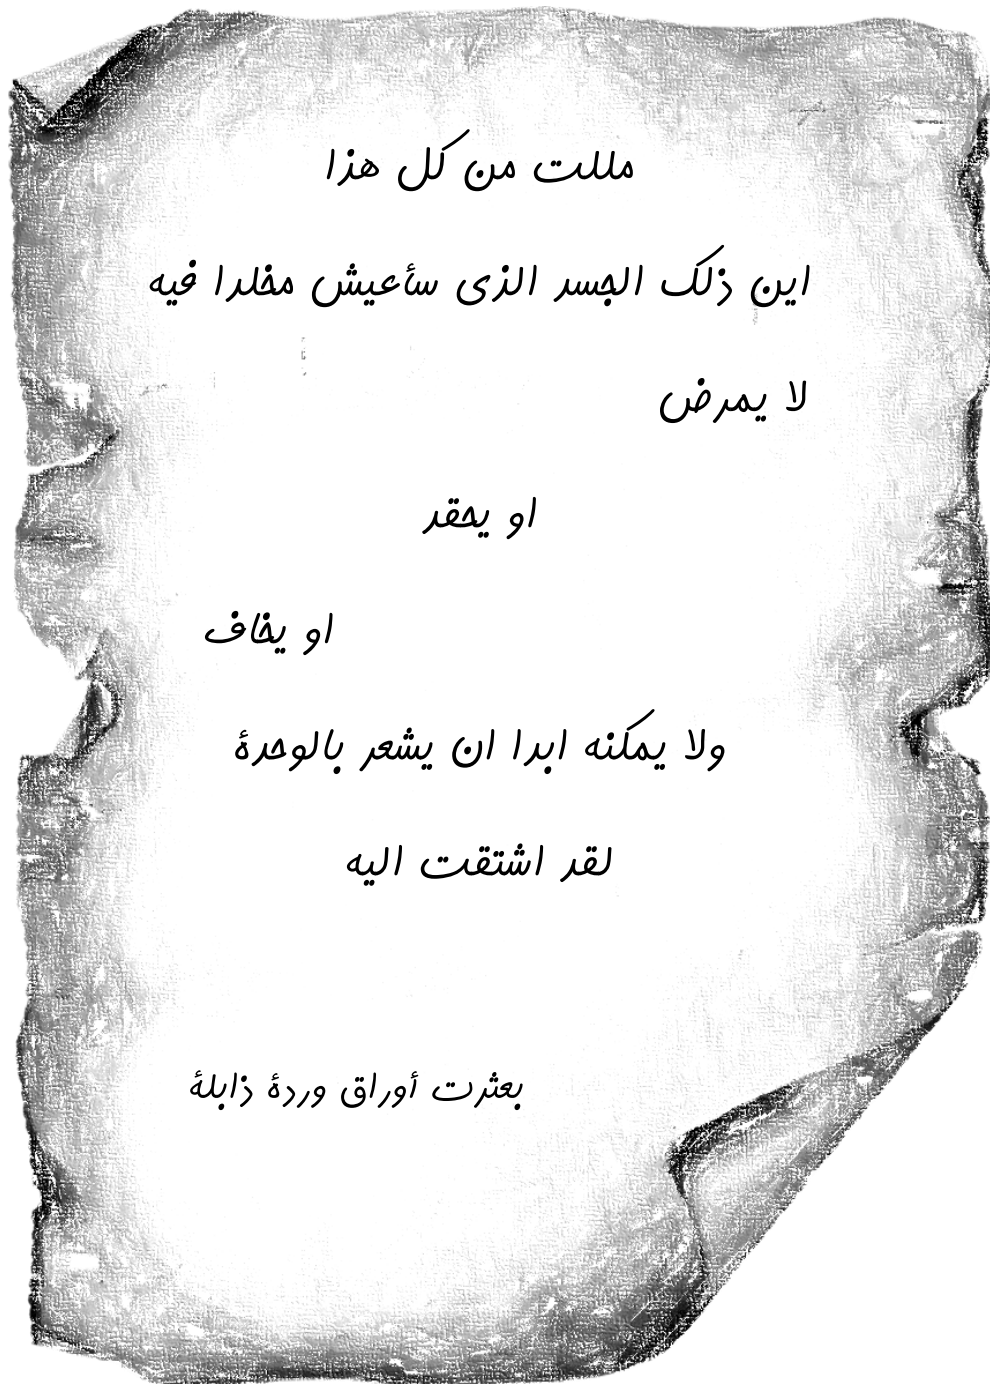 مللت من كل هذا
اين ذلك الجسد الذى سأعيش مخلدا فيه
لا يمرض
او يحقد
او يخاف
ولا يمكنه ابدا ان يشعر بالوحدة
لقد اشتقت اليه
بعثرت أوراق وردة ذابلة